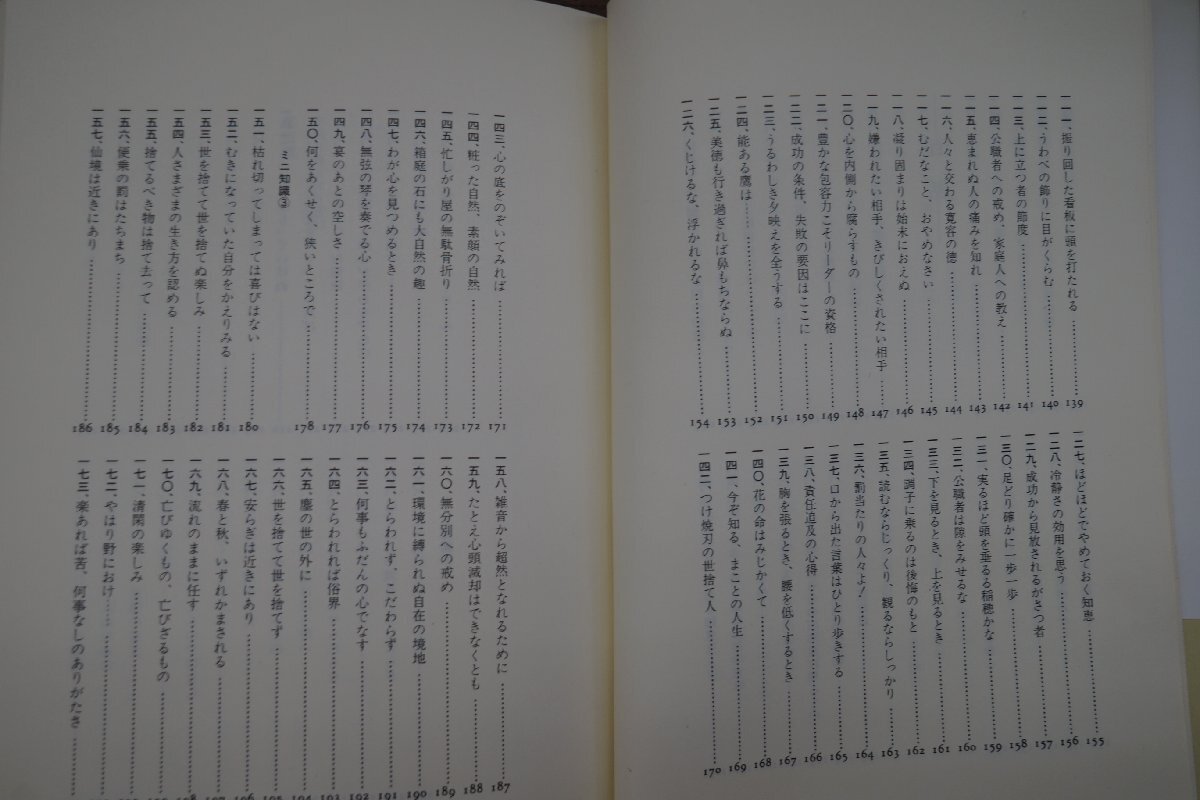 一一一、振り回した看板に頭を打たれる……139
一一二、うわべの飾りに目がくらむ……140
一一三、上に立つ者の節度……141
一一四、公職者への戒め、家庭人への教え……142
一一五、恵まれぬ人の痛みを知れ……143
一一六、人々と交わる寛容の徳……144
一一七、むだなこと、おやめなさい……145
一一八、凝り固まりは始末におえぬ……146
一一九、嫌われたい相手、きびしくされたい相手……147
一二〇、心を内側から腐らすもの……148
一二一、豊かな包容力こそリーダーの資格……149
一二二、成功の条件、失敗の要因はここに……150
一二三、うるわしき夕映えを全うする……151
一二四、能ある鷹は…………152
一二五、美徳も行き過ぎれば鼻もちならぬ……153
一二六、くじけるな、浮かれるな……154
一二七、ほどほどでやめておく知恵……155
一二八、冷静さの効用を思う……156
一二九、成功から見放されるがさつ者……157
一三〇、足どり確かに一歩一歩……158
一三一、実るほど頭を垂るる稲穂かな……159
一三二、公職者は隙をみせるな……160
一三三、下を見るとき、上を見るとき……161
一三四、調子に乗るのは後悔のもと……162
一三五、読むならじっくり、観るならしっかり……163
一三六、罰当たりの人々よ！……164
一三七、口から出た言葉はひとり歩きする……165
一三八、責任追及の心得……166
一三九、胸を張るとき、腰を低くするとき……167
一四〇、花の命はみじかくて……168
一四一、今ぞ知る、まことの人生……169
一四二、つけ焼刃の世捨て人……170
一四三、心の底をのぞいてみれば……171
一四四、粧った自然、素顔の自然……172
一四五、忙しがり屋の無駄骨折り……173
一四六、箱庭の石にも大自然の趣……174
一四七、わが心を見つめるとき……175
一四八、無弦の琴を奏でる心……176
一四九、宴のあとの空しさ……177
一五〇、何をあくせく、狭いところで……178
ミニ知識③
一五一、枯れ切ってしまっては喜びはない……180
一五二、むきになっていた自分をかえりみる……181
一五三、世を捨てて世を捨てぬ楽しみ……182
一五四、人さまざまの生き方を認める……183
一五五、捨てるべき物は捨て去って……184
一五六、便乗の罰はたちまち……185
一五七、仙境は近きにあり……186
一五八、雑音から超然となれるために……187
一五九、たとえ心頭滅却はできなくとも……188
一六〇、無分別への戒め……189
一六一、環境に縛られぬ自在の境地……190
一六二、とらわれず、こだわらず……191
一六三、何事もふだんの心でなす……192
一六四、とらわれれば俗界……193
一六五、塵の世の外に……194
一六六、世を捨てて世を捨てず……195
一六七、安らぎは近きにあり……196
一六八、春と秋、いずれかまされる……197
一六九、流れのままに任す……198
一七〇、亡びゆくもの、亡びざるもの……
一七一、清閑の楽しみ……
一七二、やはり野におけ……
一七三、楽あれば苦、何事なしのありがたさ……